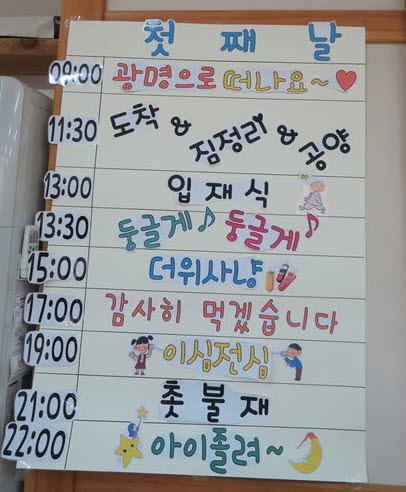 첫 째 날
09:00 광명으로 떠나요~
11:30 도착 & 짐정리 & 공양
13:00 입 재 식
13:30 둥글게♪ 둥글게♪
15:00 더위사냥
17:00 감사히 먹겠습니다
19:00 이심전심
21:00 촛 불 재
22:00 아이졸려~